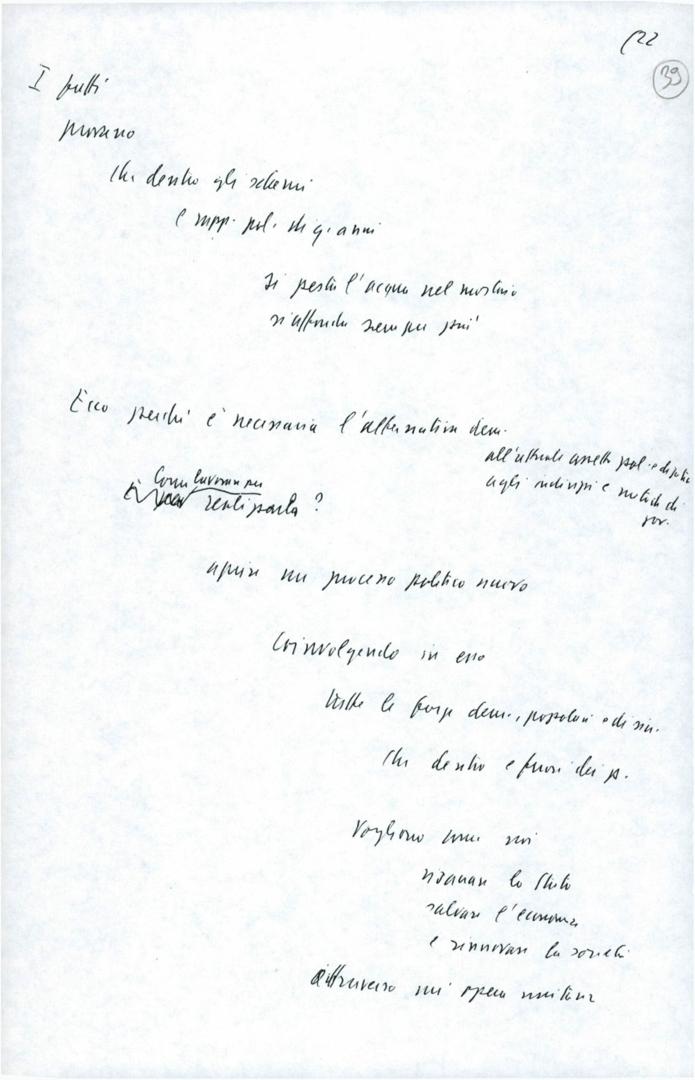 (22
39
I fatti
provano
che dentro gli schemi
e rapp. pol. di q. anni
si pesta l'acqua nel mortaio
si affonda sempre più
Ecco perché è necessaria l'alternativa dem.
all'attuale assetto pol. e di
agli indirizzi e metodi di
gov.
Come lavorare per
realizzarla?
aprire un processo politico nuovo
Coinvolgendo in esso
tutte le forze dem., popolari e di sin.
che dentro e fuori dei p.
Vogliono come noi
risanare lo Stato
salvare l'economia
e rinnovare la società
attraverso un'opera unitaria